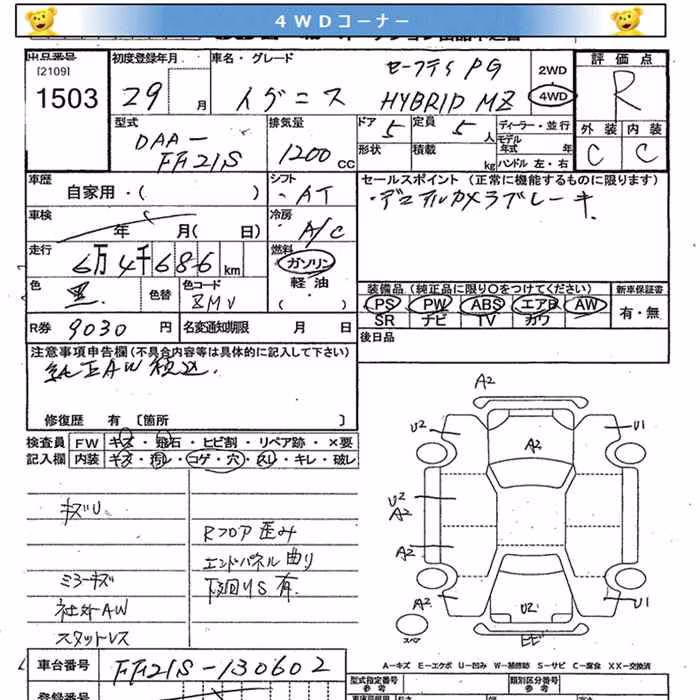 4WDコーナー
出品番号
[2109]
1503
初度登録年月
29 月
車名・グレード
セーフティPG
イグニス HYBRID MZ
2WD
4WD
評価点
R
外装 内装
C C
型式
DAA-
FF21S
排気量
1200 CC
ドア 5 定員 5 人
形状 積載 kg
ディーラー・並行
モデル年式 年
ハンドル 左・右
車歴
自家用・( )
シフト
AT
セールスポイント (正常に機能するものに限ります)
・デュアルカメラブレーキ
車検
年 月( 日)
冷房
A/C
走行
6万4千686 km
燃料
ガソリン
軽油
・( )
色
黒
色替
色コード
ZMV
装備品 (純正品に限り○をつけてください)
PS PW ABS エアB AW
SR ナビ TV カワ
新車保証書
有・無
R券 9030 円
名変通知期限 月 日
後日品
注意事項申告欄(不具合内容等は具体的に記入して下さい)
純正AW積込.
修復歴 有 〔箇所 〕
検査員 FW キズ・飛石・ヒビ割・リペア跡・×要
記入欄 内装 キズ・汚レ・コゲ・穴・スレ・キレ・破レ
キズU
Rフロア歪み
エンドパネル曲り
ミラーキズ
下回りS有
社外AW
スタットレス
A2
U2 U1
A2
U2
A2
A2
A2 U2 U1
スペア
車台番号 FF21S-130602
A-キズ E-エクボ U-凹み W-補修跡 S-サビ C-腐食 XX-交換済
登録番号
型式指定番号
参考
類別区分番号
参考